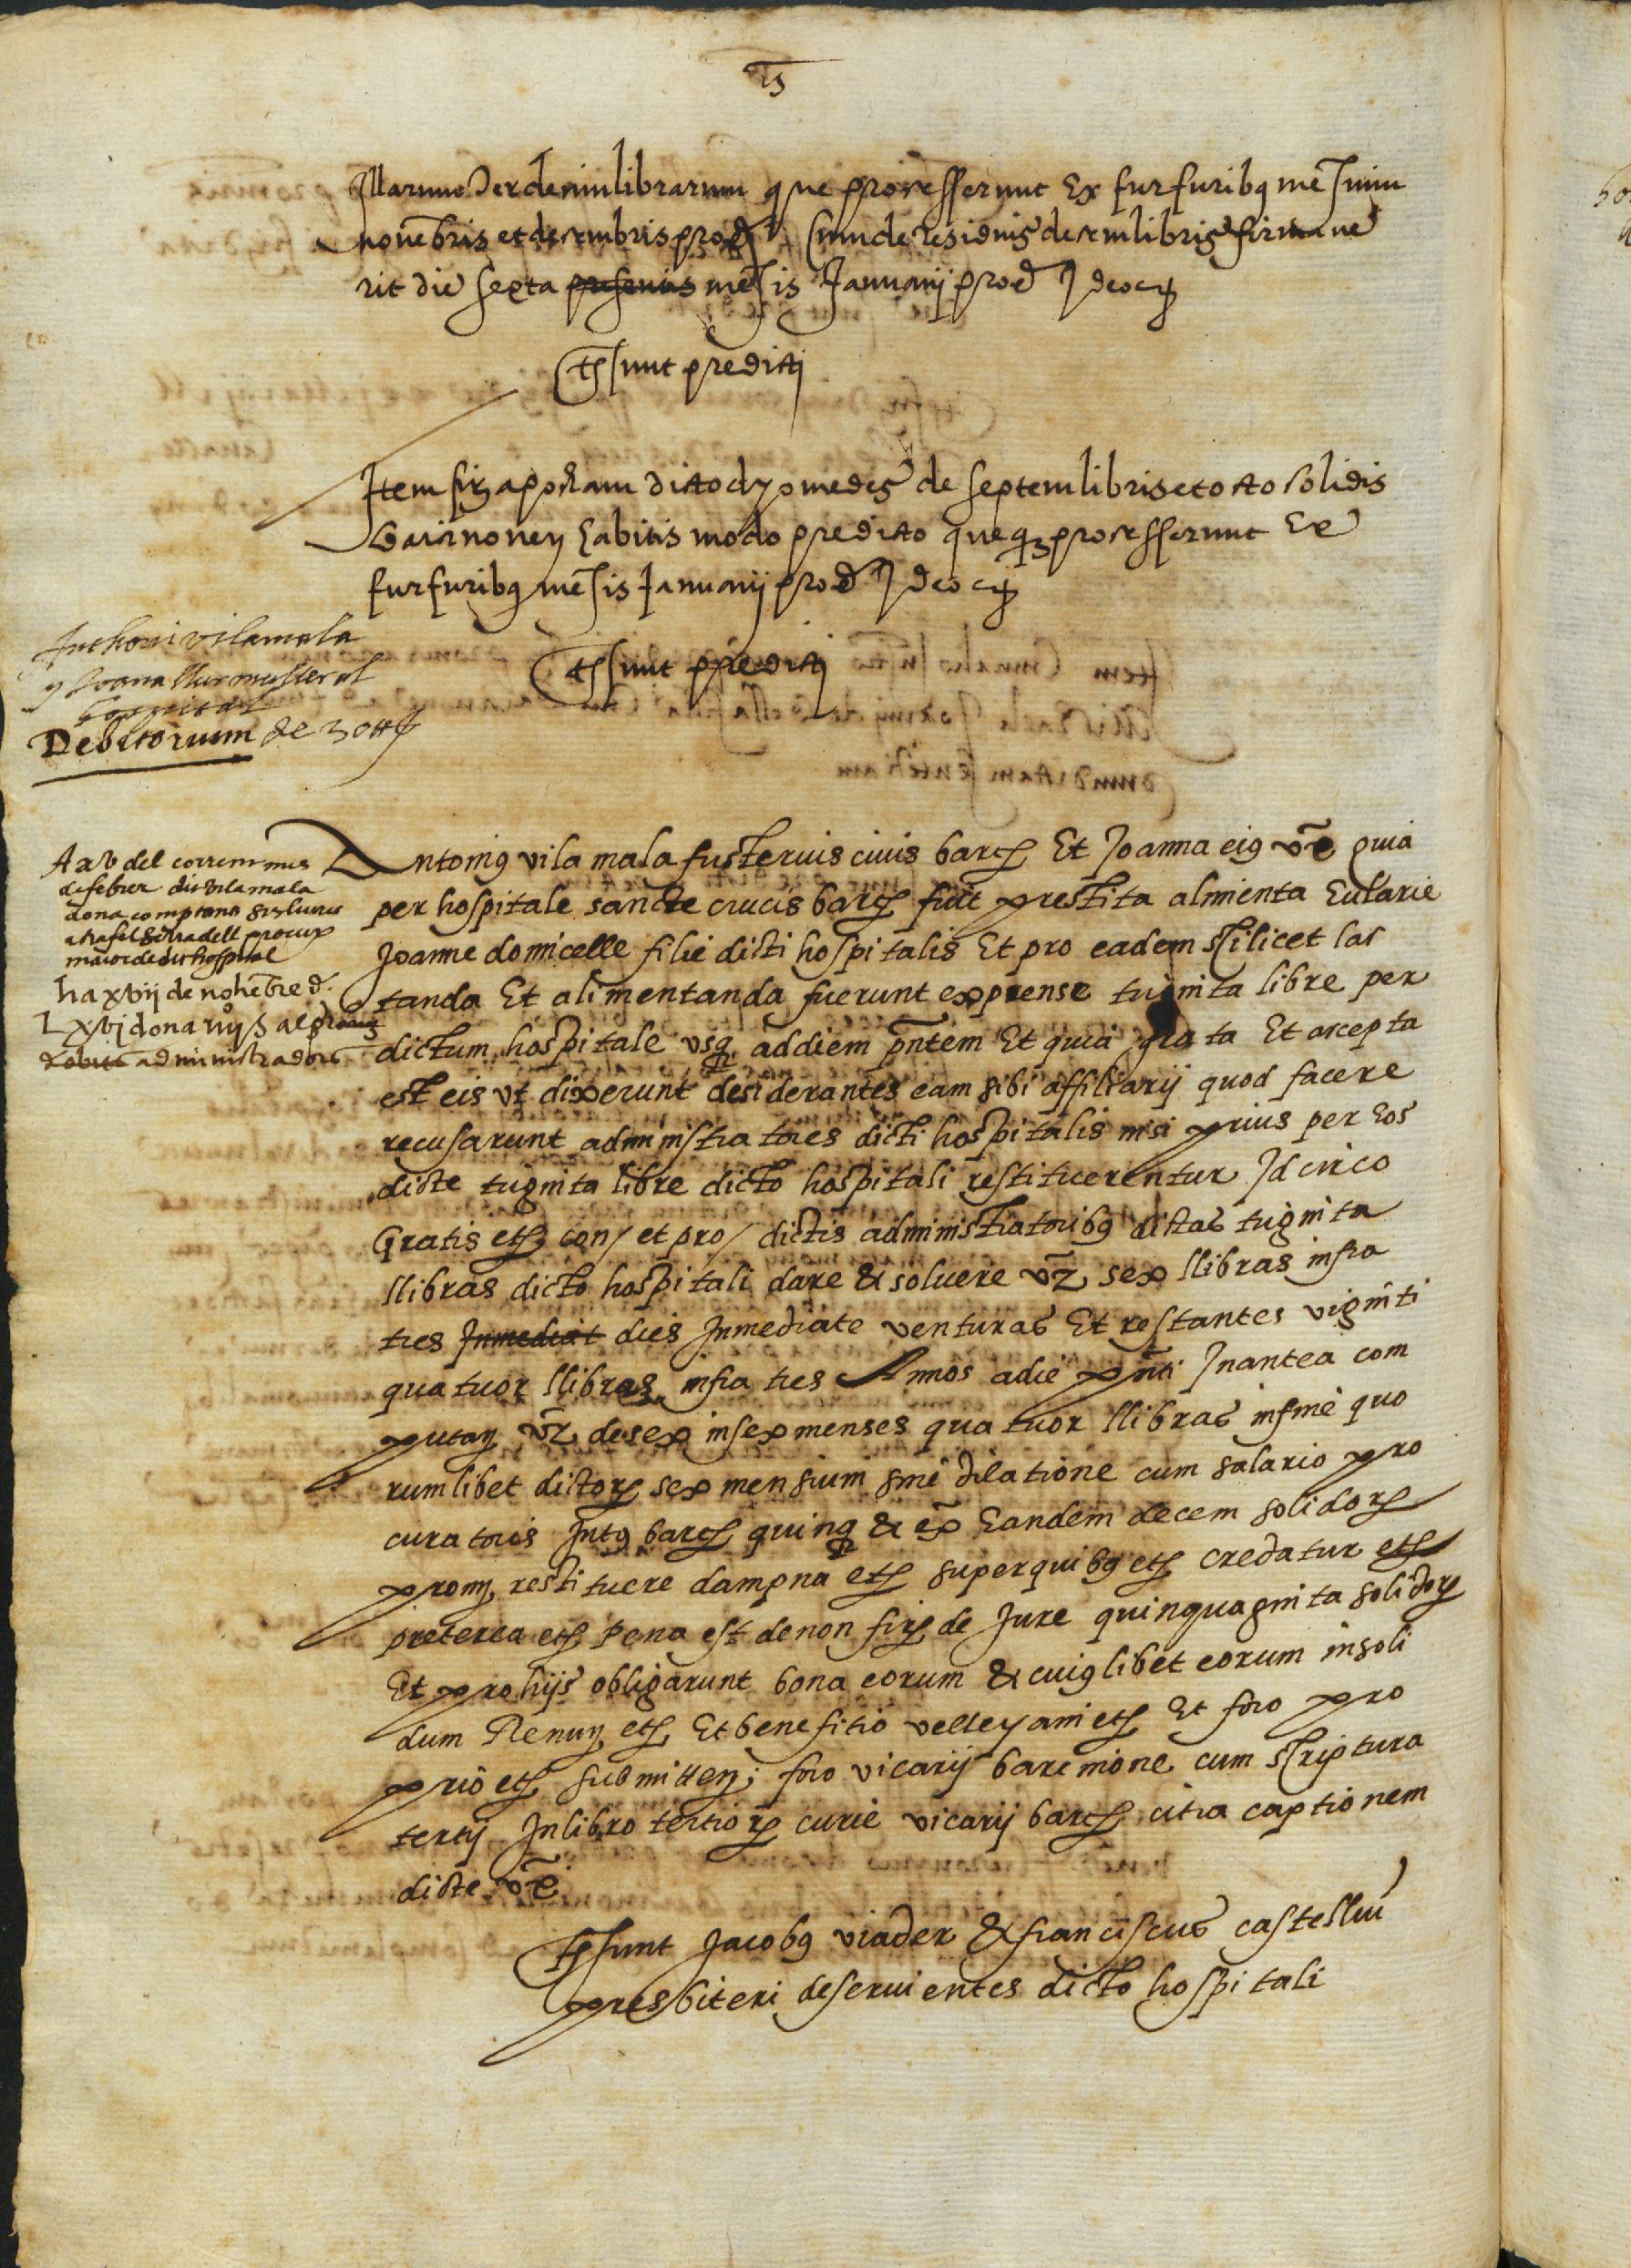 Illarum sexdecim librarum que processerunt Ex furfuribq mēsium
novēbris et decembris prod Cum de residuis decem libris firmave
rit die sexta presentis mēsis Januarij prod Ideo etc
Ts sunt predicti
Item fir apocham dicto dyomedes de septem libris et octo solidis
barcinonen habitis modo predicto queq processerunt Ex
furfuribq mēsis Januarij prod Ideo etc
Ts sunt predicti
Anthoni vilamala
y Joana llur muller al
hospital
Debitorium de 30 ll
A xv del corrent mes
de febrer dit vilamala
dona comptans sis lliures
a rafel serradell procur
maior de dit hospital
ha xvij de nohēbre d.
Lxvj dona
administradors
Antoniq vila mala fusterius civis barc Et Joanna eiq vxē quia
per hospitale sancte crucis barc fuit prestita alimenta Eularie
Joanne domicelle filie dicti hospitalis Et pro eadem scilicet lac
tanda Et alimentanda fuerunt expense triginta libre per
dictum hospitale vsq addiem pn̄tem Et quia grata Et accepta
est eis vt dixerunt desiderantes eam sibi affiliarij quod facere
recusarunt administratores dicti hospitalis nisi prius per Eos
dicte triginta libre dicto hospitali restituerentur Idcirco
Gratis etc con / et pro / dictis administratoribq dictas triginta
llibras dicto hospitali dare & solvere vz sex llibras infra
tres Inmediat dies Inmediate venturas Et restantes viginti
quatuor llibras infra tres Annos adie pn̄ti Inantea com
putan vz de sex in sex menses quatuor llibras in fine quo
rumlibet dictor sex mensium sine dilatione cum salario pro
curatoris Intq barc quinq & ex Eandem decem solidor
prom restituere dampna etc super quibq etc credatur etc
preterea etc Pena est de non fir de Jure quinquaginta solidor
Et pro hijs obligarunt bona eorum & cuiqlibet eorum insoli
dum Renun etc Et benefitio velleyani etc Et foro pro
prio etc submitten foro vicarij barcinone cum scriptura
tertij In libro tertior curie vicarij barc citra captionem
dicte vxē
Ts sunt Jacobq viader & franciscus castellvi
presbiteri deservientes dicto hospitali